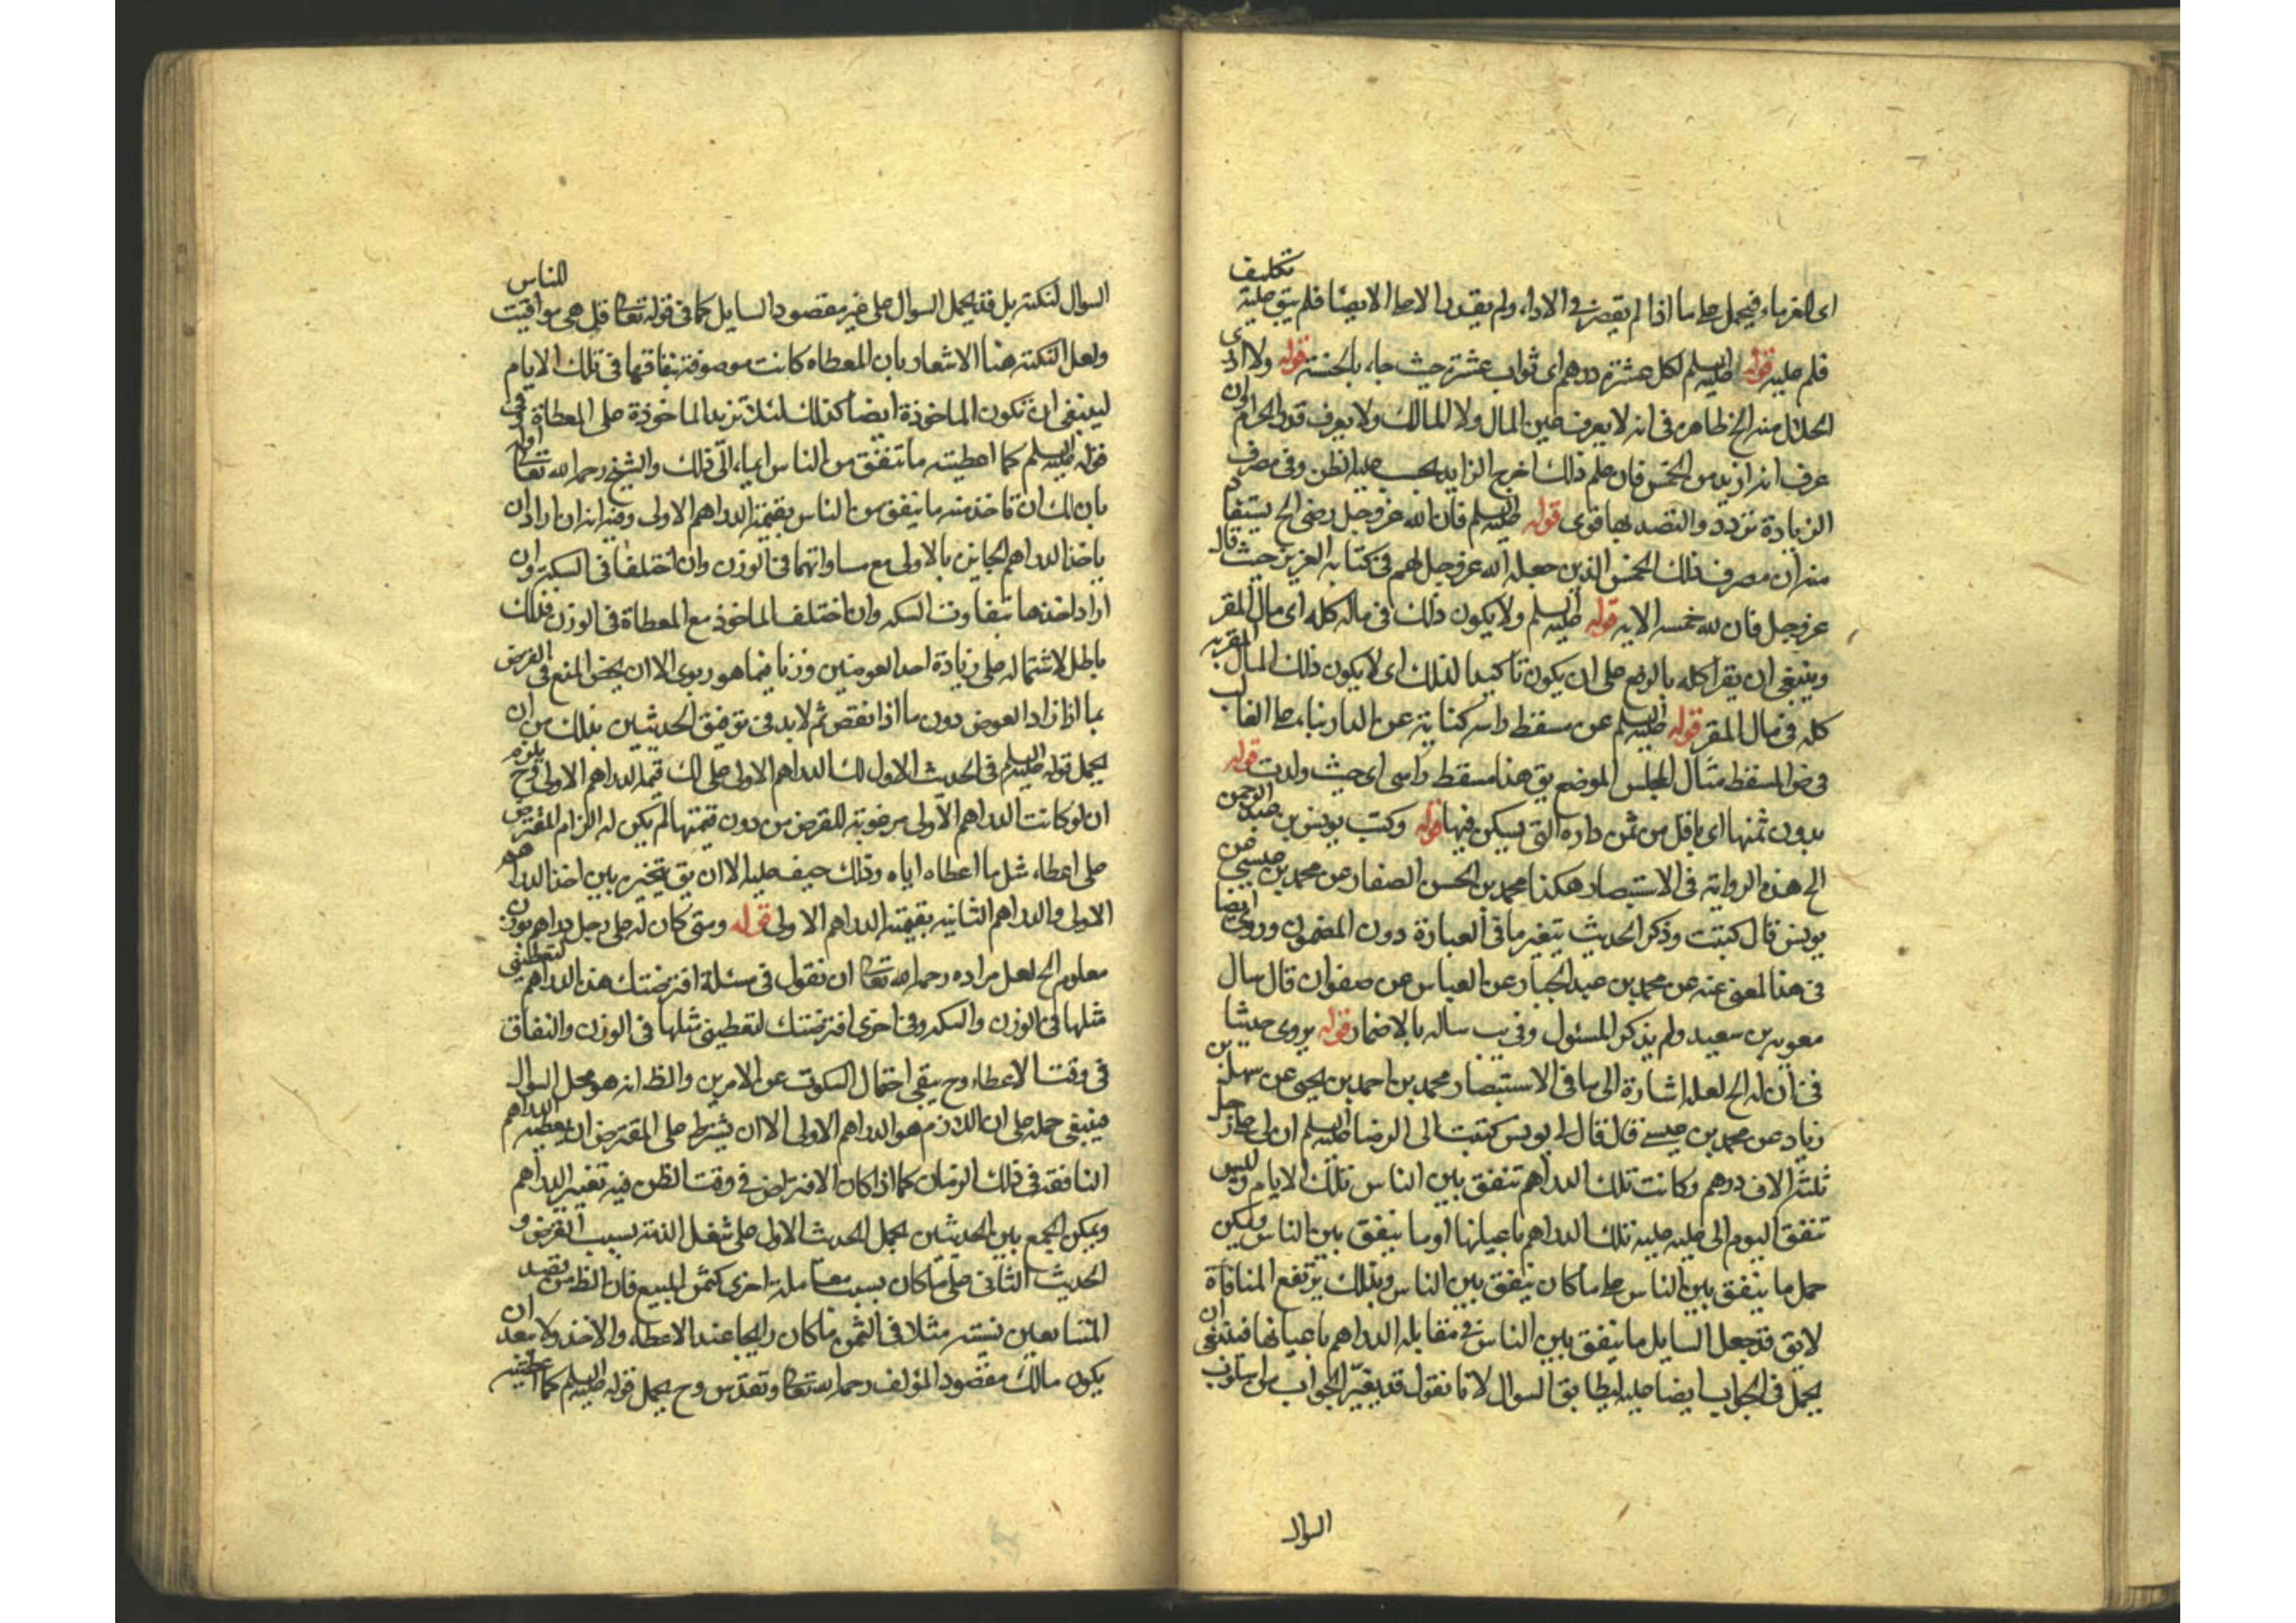 اى الغرماء فيحمل على ما اذا لم يقصر فى الاداء ولم يقدر الا على الايصا فلم يبق عليه تكليف
قلم عليه قوله عليه السلم لكل عشرة درهم اى ثواب عشرة حيث جاء بالحسنة قوله ولا ارى
الحلال منه الخ ظاهره فى انه لا يعرف عين المال ولا المالك ولا يعرف قدر الحرام
عرف انه ازيد من الخمس فان علم ذلك اخرج الزايد بحسب عليه الظن وفى مصرف
الزيادة تردد والتصدق بها قوى قوله عليه السلم فان الله عز وجل رضى الخ يستفاد
منه ان مصرف ذلك الخمس الذين جعله الله عز وجل لهم فى كتابه العزيز حيث قال
عز وجل فان لله خمسه الايه قوله عليه السلم ولا يكون ذلك فى ماله كله اى مال المقر
وينبغى ان يقرا كله بالرفع على ان يكون تاكيدا لذلك اى لا يكون ذلك المال المقر به
كله فى مال المقر قوله عليه السلم عن مسقط راسه كناية عن الدار بناء على الغالب
فى ض المسقط مثال المجلس الموضع يق هذا مسقط راسى اى حيث ولدت قوله
بدون ثمنها اى باقل من ثمن داره التى يسكن فيها قوله وكتب يونس بن عبد الرحمن
الخ هذه الرواية فى الاستبصار هكذا محمد بن الحسن الصفار عن محمد بن عيسى عن
يونس قال كتبت وذكر الحديث بتغير ما فى العبارة دون المضمون وروى ايضا
فى هذا المعنى عنه عن محمد بن عبد الجبار عن العباس عن صفوان قال سال
معوية بن سعيد ولم يذكر المسئول وفى يب ساله بالاضمار قوله يروى حديثا
فى ان له الخ لعله اشارة الى ما فى الاستبصار محمد بن احمد بن يحيى عن سهل بن
زياد عن محمد بن عيسى قال قال لى يونس كتبت الى الرضا عليه السلم ان لى على رجل
ثلثة الاف درهم وكانت تلك الدراهم تنفق بين الناس تلك الايام وليس
تنفق اليوم الى عليه عليه تلك الدراهم باعيانها او ما ينفق بين الناس ويمكن
حمل ما ينفق بين الناس على ما كان ينفق بين الناس وبذلك يرتفع المنافاة
لا يق قد جعل السايل ما ينفق بين الناس فى مقابلة الدراهم باعيانها فينبغى ان
يحمل فى الجواب ايضا عليه ليطابق السوال لانا نقول قد يغير الجواب من اسلوب
السوال
السوال لنكتة بل قد يحمل السوال على غير مقصود السايل كما فى قوله تعالى قل هى مواقيت للناس
ولعل النكتة هنا الاشعار بان المعطاه كانت موصوفة بنفاقها فى تلك الايام
لينبغى ان تكون الماخوذة ايضا كذلك لئلا تزيد الماخوذة على المعطاة
قوله عليه السلم كما اعطيته ما تنفق من الناس ايماء الى ذلك والشيخ رحمه الله تعالى اوله
بان لك ان تاخذ منه ما ينفق من الناس بقيمة الدراهم الاولى وفيه انه ان اراد ان
ياخذ الدراهم الجايز بالاولى مع مساواتهما فى الوزن وان اختلفا فى السكة وان
اراد اخذها بتفاوت السكه وان اختلف الماخوذ مع المعطاة فى الوزن فذلك
باطل لاشتماله على زيادة احد العوضين وزنا فيما هو ربوى الا ان يخص المنع فى القرض
بما اذا زاد العوض دون ما اذا نقص ثم لابد فى توفيق الحديثين بذلك من ان
يحمل قوله عليه السلم فى الحديث الاول لك الدراهم الاولى على لك قيمة الدراهم الاولى وح يلزم
ان لو كانت الدراهم الاولى مرغوبة للقرض من دون قيمتها لم يكن له الزام المقترض
على اعطاء مثل ما اعطاه اياه وذلك حيف عليه الا ان يق يتخير بين اخذ الدراهم
الاولى والدراهم الثانية بقيمة الدراهم الاولى قوله ومتى كان له على رجل دراهم بوزن
معلوم الخ لعل مراده رحمه الله تعالى ان نقول فى مسئلة اقترضتك هذه الدراهم لتعطينى
مثلها فى الوزن والسكه وفى اخرى اقترضتك لتعطينى مثلها فى الوزن والنفاق
فى وقت الاعطاء وح يبقى احتمال السكوت عن الامرين والظ انه هو محل السوال
فينبغى حمله على ان اللازم هو الدراهم الاولى الا ان يشترط على المقترض ان يعطيه الدراهم
النافقة فى ذلك الزمان كما اذا كان الاقتراض فى وقت الظن فيه تغير الدراهم
ويمكن الجمع بين الحديثين بحمل الحديث الاول على شغل الذمة بسبب القرض و
الحديث الثانى على ما كان بسبب معاملة اخرى كثمن المبيع فان الظ من قصد
المتبايعين نسيئة مثلا فى الثمن ما كان رايجا عند الاعطاء والاخذ ولا يبعد ان
يكون مالك مقصود المؤلف رحمه الله تعالى وتقدس وح يحمل قوله عليه السلم كما اعطيته